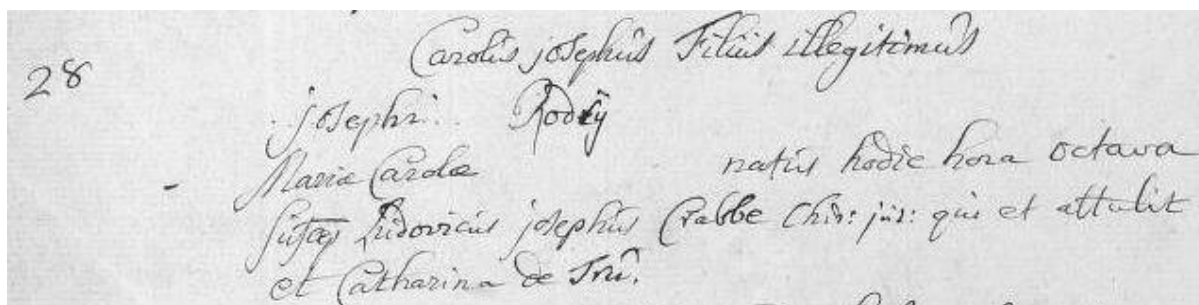 28 Carolus josephus Filius illegitimus
josephi Rodrij
Mariæ Carolæ natus hodie hora octava
Suscep Ludovicus josephus Crabbe Chir: jur: qui et attulit
et Catharina de